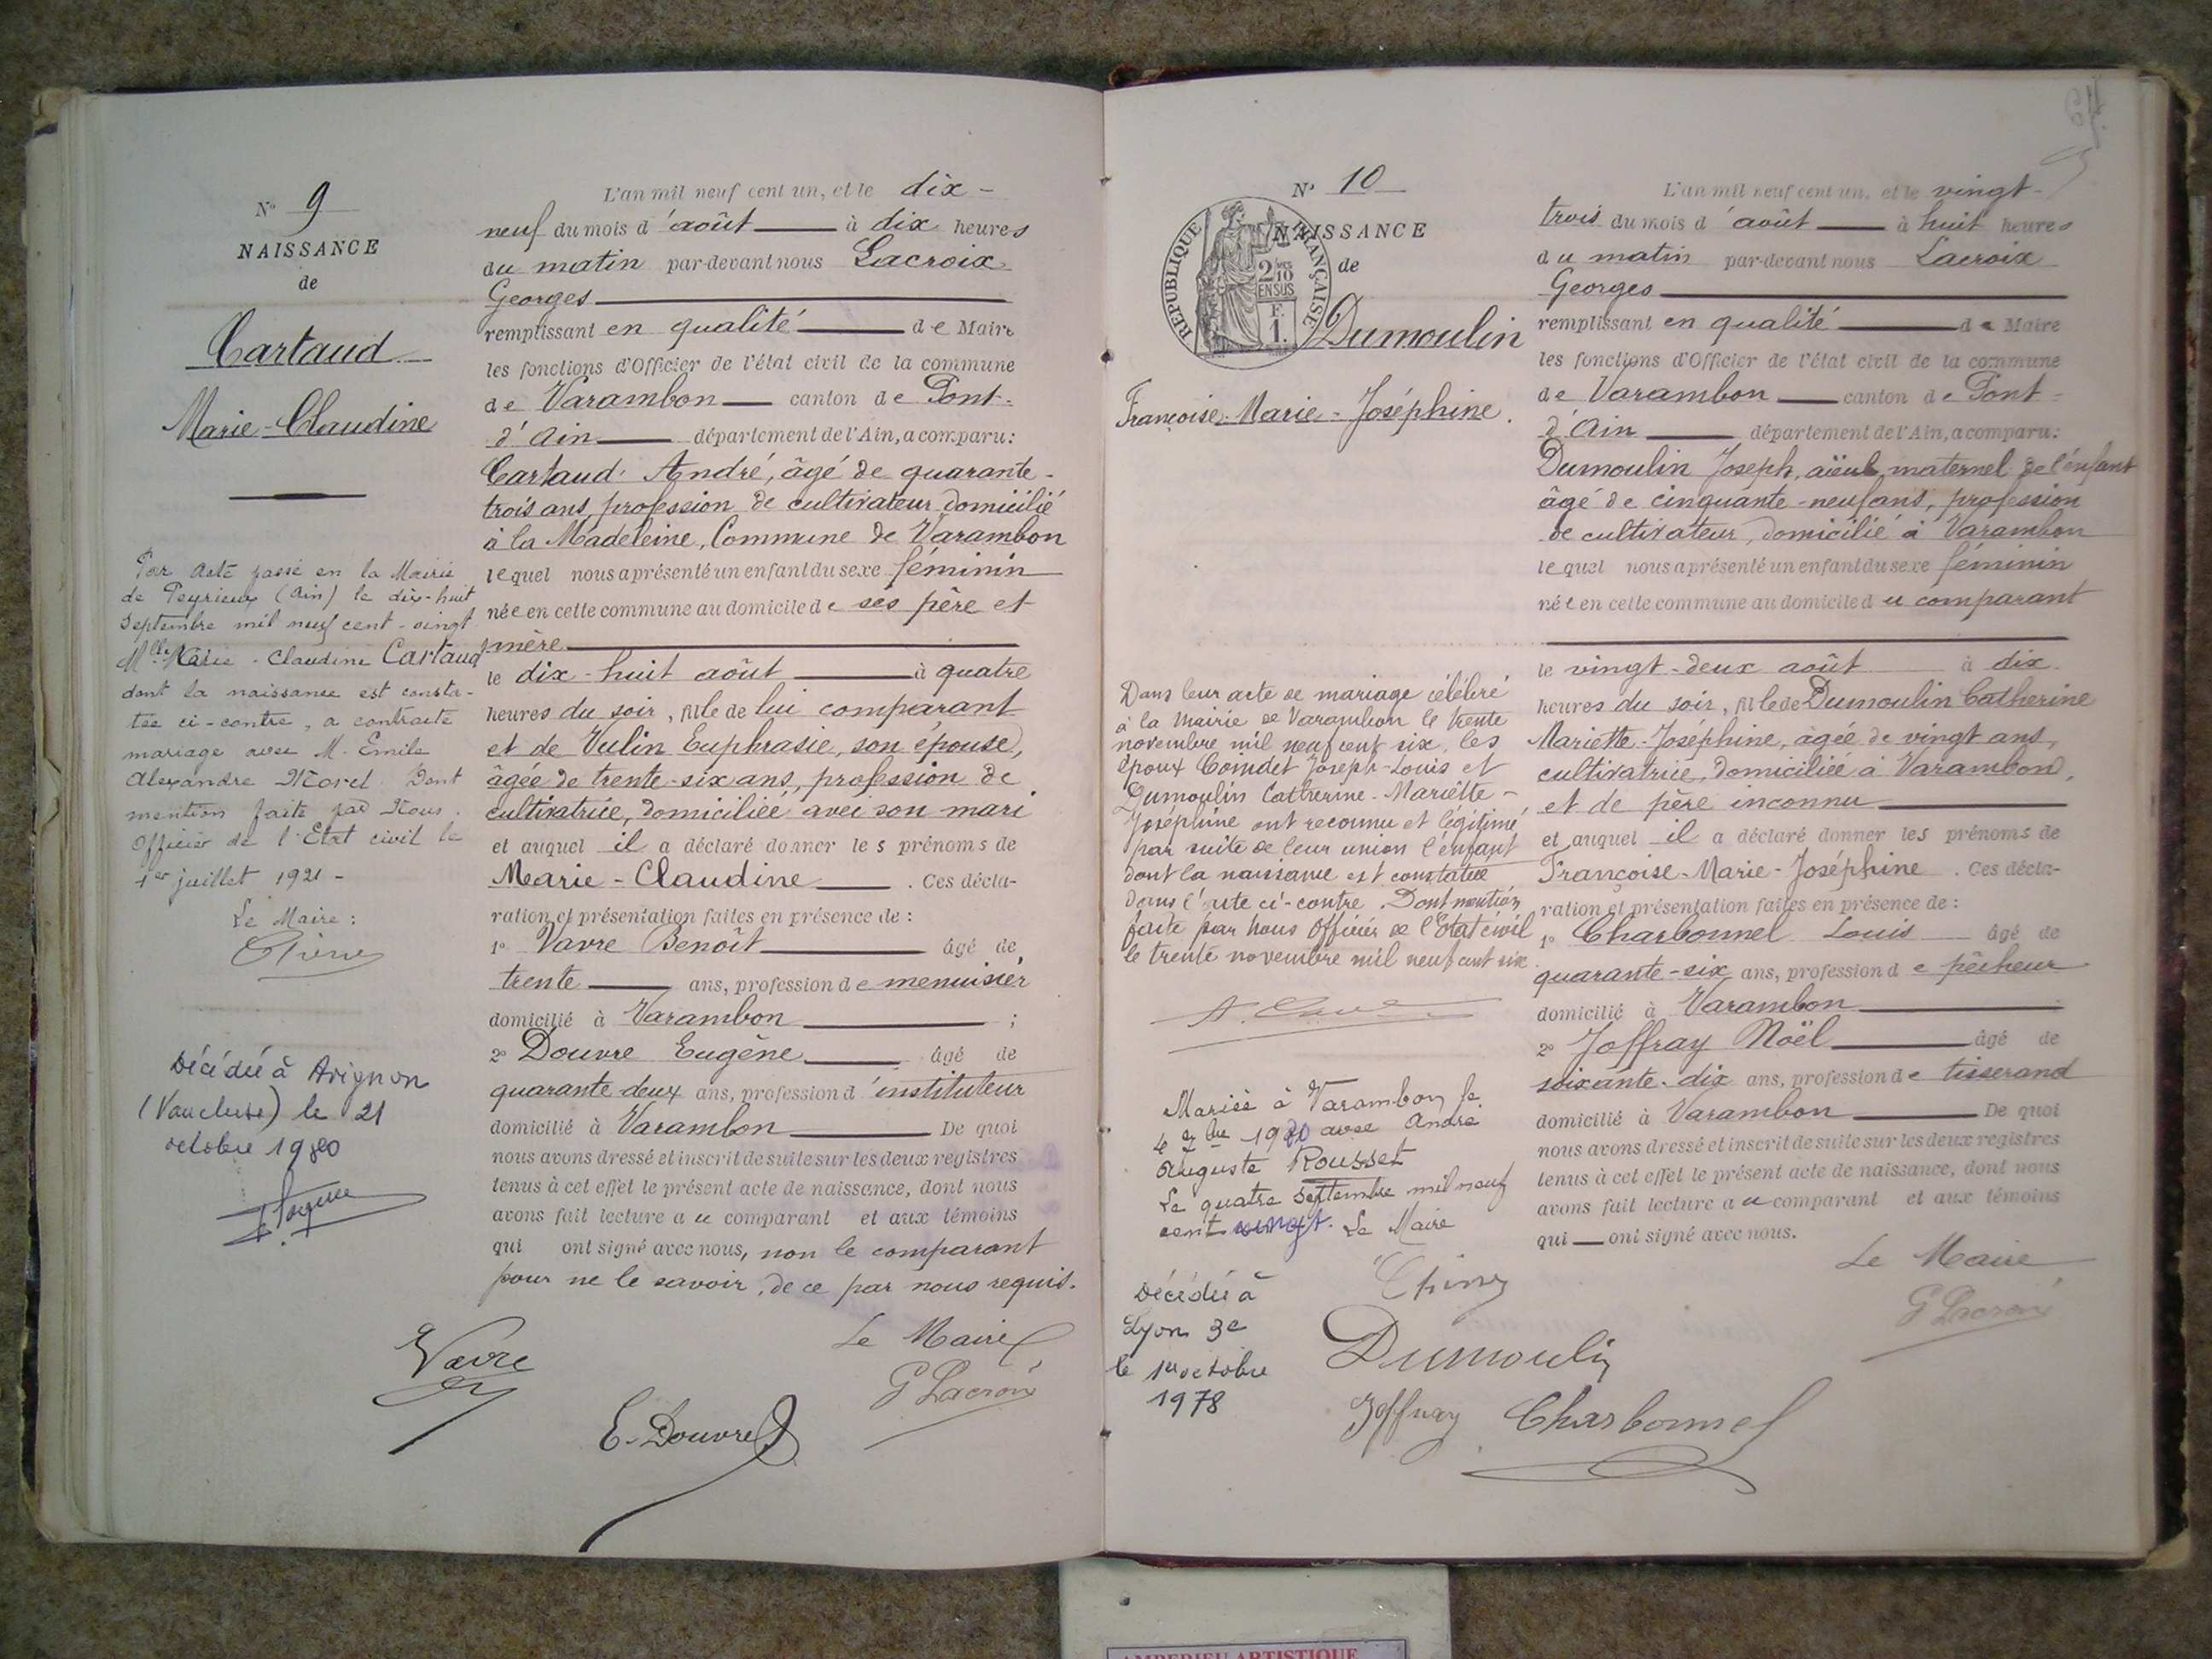 N° 9
NAISSANCE
de
Cartaud
Marie-Claudine
Par acte passé en la Mairie
de Peyrieux (Ain) le dix-huit
septembre mil neuf cent-vingt
Mlle Marie-Claudine Cartaud
dont la naissance est consta-
tée ci-contre, a contracté
mariage avec M. Emile
Alexandre Morel Dont
mention faite par Nous
Officier de l'Etat civil le
1er juillet 1921-
Le Maire:
Décédée à Avignon
(Vaucluse) le 21
octobre 1980
L'an mil neuf cent un, et le dix-
neuf du mois d'août à dix heures
du matin par-devant nous Lacroix
Georges
remplissant en qualité de Maire
les fonctions d'Officier de l'état civil de la commune
de Varambon canton de Pont-
d'Ain département de l'Ain, a comparu:
Cartaud André, âgé de quarante-
trois ans, profession de cultivateur domicilié
à la Madeleine, Commune de Varambon
lequel nous a présenté un enfant du sexe féminin
née en cette commune au domicile de ses père et
mère
le dix-huit août à quatre
heures du soir, fille de lui comparant
et de Vulin Euphrasie, son épouse,
âgée de trente-six ans, profession de
cultivatrice, domiciliée avec son mari
et auquel il a déclaré donner les prénoms de
Marie-Claudine. Ces décla-
ration et présentation faites en présence de:
1° Vavre Benoît âgé de
trente ans, profession de menuisier
domicilié à Varambon;
2° Douvre Eugène âgé de
quarante-deux ans, profession d'instituteur
domicilié à Varambon De quoi
nous avons dressé et inscrit de suite sur les deux registres
tenus à cet effet le présent acte de naissance, dont nous
avons fait lecture au comparant et aux témoins
qui ont signé avec nous, non le comparant
pour ne le savoir, de ce par nous requis.
Le Maire
Vavre
G Lacroix
E. Douvre
N° 10
NAISSANCE
de
REPUBLIQUE FRANÇAISE
2/10 EN SUS
F. 1.
Dumoulin
Françoise-Marie-Joséphine.
Dans leur acte de mariage célébré
à la Mairie de Varambon le trente
novembre mil neuf cent six, les
époux Coindet Joseph-Louis et
Dumoulin Catherine-Mariette-
Joséphine ont reconnu et légitimé
par suite de leur union l'enfant
dont la naissance est constatée
dans l'acte ci-contre. Dont mention
faite par Nous Officier de l'Etat civil
le trente novembre mil neuf cent six
Mariée à Varambon le
4 7bre 1920 avec André
Auguste Rousset
Le quatre septembre mil neuf
cent vingt. Le Maire
Décédée à
Lyon 3e
le 1er octobre
1978
L'an mil neuf cent un, et le vingt-
trois du mois d'août à huit heures
du matin par-devant nous Lacroix
Georges
remplissant en qualité de Maire
les fonctions d'Officier de l'état civil de la commune
de Varambon canton de Pont-
d'Ain département de l'Ain, a comparu:
Dumoulin Joseph, aïeul maternel de l'enfant
âgé de cinquante-neuf ans, profession
de cultivateur, domicilié à Varambon
lequel nous a présenté un enfant du sexe féminin
née en cette commune au domicile du comparant
le vingt-deux août à dix
heures du soir, fille de Dumoulin Catherine
Mariette-Joséphine, âgée de vingt ans,
cultivatrice, domiciliée à Varambon,
et de père inconnu
et auquel il a déclaré donner les prénoms de
Françoise-Marie-Joséphine. Ces décla-
ration et présentation faites en présence de:
1° Charbonnel Louis âgé de
quarante-six ans, profession de pêcheur
domicilié à Varambon
2° Joffray Noël âgé de
soixante-dix ans, profession de tisserand
domicilié à Varambon De quoi
nous avons dressé et inscrit de suite sur les deux registres
tenus à cet effet le présent acte de naissance, dont nous
avons fait lecture au comparant et aux témoins
qui ont signé avec nous.
Le Maire
G Lacroix
Dumoulin
Joffray Charbonnel
AMBERIEU ARTISTIQUE